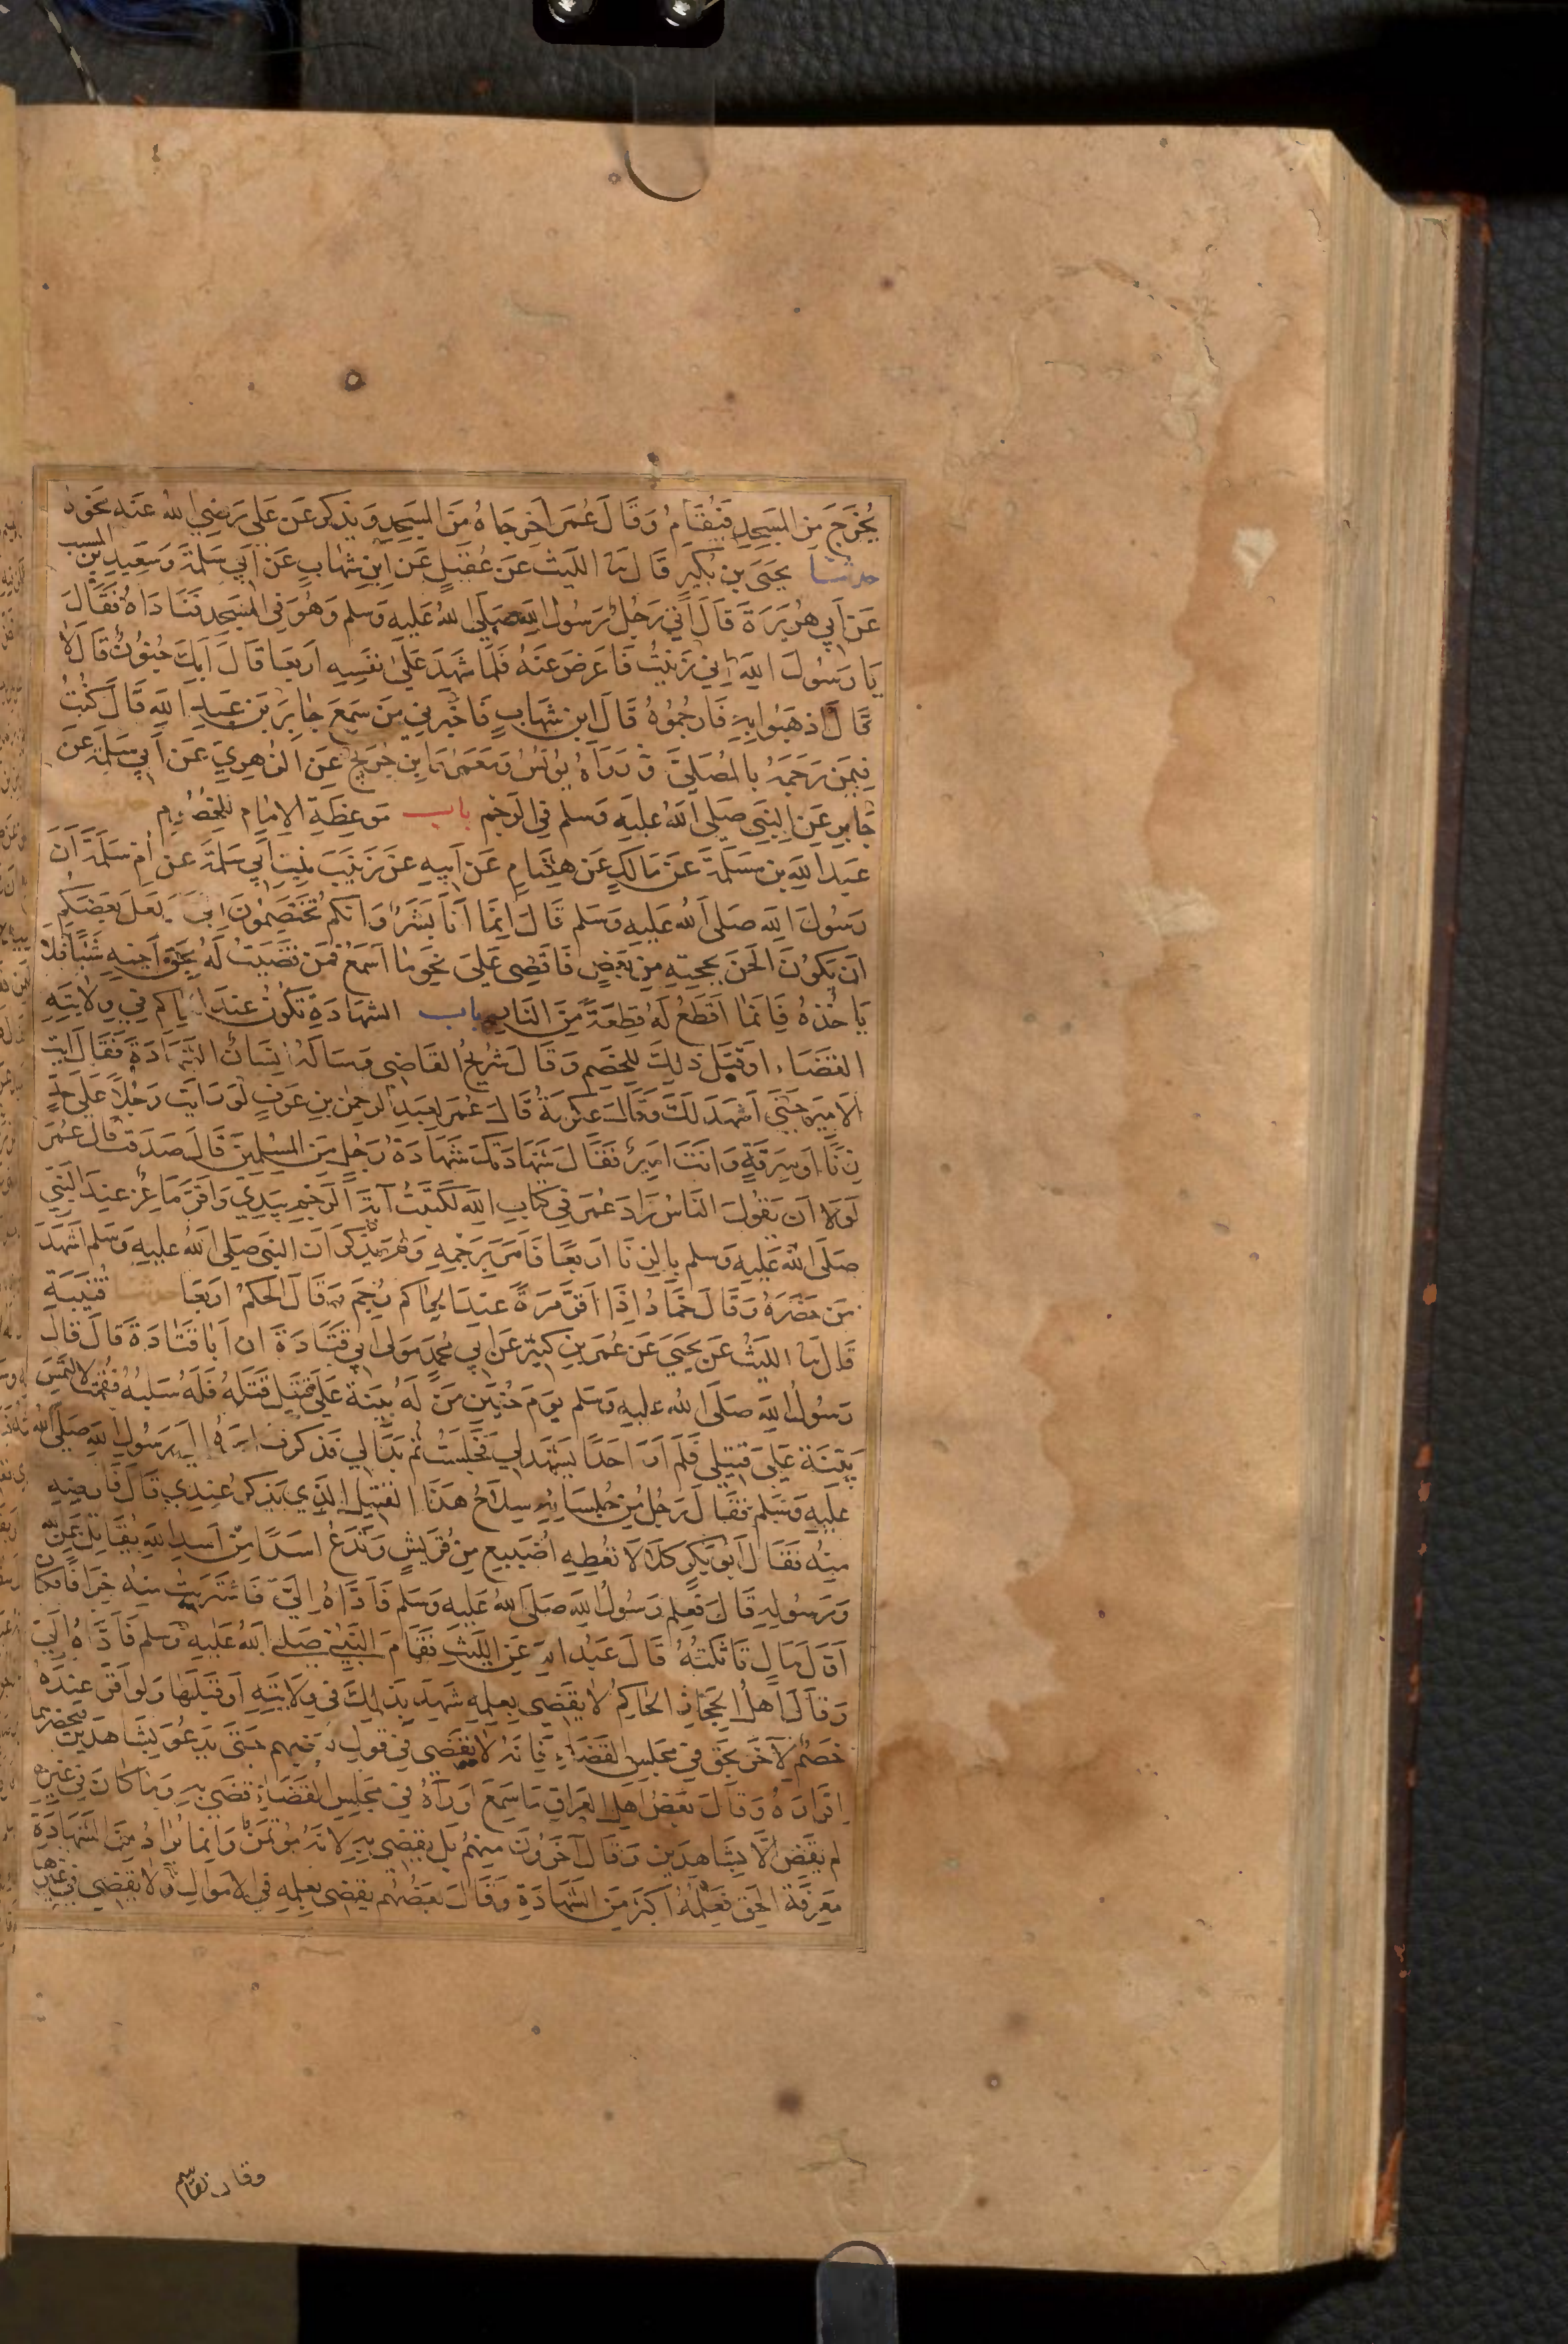 يُخْرَجَ مِنَ المَسْجِدِ فَيُقَامُ وَقَالَ عُمَر اَخْرِجَاهُ مِنَ المَسْجِدِ وَيذكر عَن عَلي رَضِي الله عَنه نحَوه
حدثنا يحيَى بن بُكَيرٍ قَال نا الليث عَن عُقَيلٍ عَن ابن شهابٍ عَن أبي سَلمة وَسَعيدِ بن المسيب
عَن أبي هُرَيرَة قَال أتى رَجُلٌ رَسُولَ الله صَلى اللهُ عَليهِ وَسلم وَهُوَ في المسجد فنَادَاهُ فقَالَ
يَا رَسُولَ اللهِ اِني زَنَيتُ فَاعرَضَ عَنهُ فلمَّا شَهِدَ عَلَى نفسِهِ اَربَعا قَالَ اَبِكَ جنُونٌ قَالَ لا
قَالَ اذهَبُوا بِهِ فَارجُمُوهُ قَالَ ابن شهَابٍ فَاخبَرني مَن سَمِعَ جَابِرَ بنَ عَبدِ اللهِ قَالَ كُنتُ
فيمَن رَجَمَهُ بالمُصَلىَّ وَرَوَاهُ يونسُ وَمَعمَر وَابن جُرَيج عَن الزهري عَن أبي سَلمَة عَن
جَابِر عَن النبي صَلى اللهُ عليهِ وَسلم في الرَجم باب مَوعِظَةِ الاِمَامِ للخصُومِ
عَبدُ اللهِ بن مَسلَمَةَ عَن مَالكٍ عَن هِشَامٍ عَن اَبيهِ عَن زَينَبَ بنتِ أبي سَلمَةَ عن أم سَلَمَة اَنَ
رَسُولَ اللهِ صَلى الله عَليهِ وَسَلم قالَ اِنمَّا اَنَا بَشَرٌ وَانكم تختَصِمُونَ الَيَّ وَلعَلَّ بَعضَكُم
اَن يَكوُنَ اَلحَنَ بحُجَّتِهِ مِن بَعضٍ فَاَقضِى عَلىَ نَحوِ مَا اَسمَعُ فمَن قَضَيتُ لَهُ بحَقِ اَخِيهِ شَيئًا فَلا
يَاخُذهُ فَانمَا اَقطَعُ لَهُ قِطعَةً مِنَ النَارِ باب الشهَادَةِ تكُونُ عِندَ الحَاكِم في وِلايَتِهِ
القضَاء اوقَبلَ ذلِكَ للخَصم وَقَالَ شرَيحٌ القاضِى وَسَالَهُ اِنسَانٌ الشهَادَة فَقَالَ ايتِ
الاَمِيرَ حَتىَّ اَشهَدَ لَكَ وَقَالَ عِكرِمَةُ قَالَ عُمَر لِعَبدِ الرحمن بنِ عَوفٍ لوَ رَايتَ رَجُلاً عَلى حَدٍّ
زِنًا اَو سَرِقَةٍ وَانتَ اميرٌ فقَالَ شهَادَتكَ شَهَادَةُ رَجُلٍ مِنَ المسْلِمينَ قَالَ صَدَقتَ قالَ عُمَرُ
لَولا اَن يَقُولَ النَاسُ زَادَ عُمَرُ في كتابِ اللهِ لَكَتَبتُ آيَةَ الرَجمِ بيَدِي وَاَقَرَّ مَاعِزٌ عِندَ النبي
صَلَى اللهُ عَليهِ وَسلم بالزنَا اَربَعًا فَاَمَرَ بِرَجمِهِ وَلمَ يُذكر اَنَ النبي صَلى اللهُ عليهِ وَسَلم اَشهَدَ
مَن حَضَرَهُ وَقَالَ حَمَّادٌ اِذَا اَقَرَّ مَرَةً عندَ الحَاكم رُجِمَ وَقَالَ الحَكمُ اَربَعَا حدثنا قُتَيبَة
قَال نا الليثُ عَن يحيَى عَن عُمَر بنِ كثير عَن أبي مُحمدٍ مَولى أبي قَتَادَةَ ان اَبَا قتَادَة قَالَ قالَ
رَسُولُ اللهِ صَلَى اللهُ عَليهِ وَسَلم يَومَ حُنَينٍ مَن لَهُ بَيّنَة عَلى قتيلٍ قَتَلَهُ فَلَهُ سَلَبُهُ فقُمتُ لالتَمِسَ
بَيّنَة عَلى قتيلٍ فَلَم اَرَ اَحَدًا يَشهَد لي فَجَلَستُ ثم بَدَا لي فذكرت امرهُ الى رَسُولِ اللهِ صَلى الله
عليهِ وَسَلم فقَالَ رَجُلٌ مِن جُلسَائِهِ سِلاَحُ هَذَا القتيل الذي يَذكرُ عِندِي قَالَ فَارضِهِ
مِنهُ فقَالَ اَبُو بَكرٍ كَلا لاَ تعُطِهِ اُضَيبِع مِن قُرَيشٍ وَتدَعُ اَسَدًا مِن اُسدِ اللهِ يُقَاتِلُ عَنِ اللهِ
وَرَسُولِهِ قَالَ فعَلِم رَسُولُ اللهِ صَلىَ اللهُ عَليهِ وَسَلم فَاَدَّاهُ اِليَّ فَاشتَرَيتُ مِنه خِرَافًا فكانَ
اَوَلَ مَالٍ تَاثلتُهُ قَالَ عَبدُ اللهِ عَنِ الليثِ فقَامَ النَبي صَلى اللهُ عَليهِ وَسلم فَادَّاهُ اِليَّ
وَقاَلَ اَهلُ الحجَازِ الحَاكِمُ لا يَقضِى بِعِلمِهِ شَهِدَ بذَلِكَ في وِلايَتِهِ اَو قَبلَهَا وَلو اَقَر عِندَهُ
خَصمٌ لآخَرَ بحَق في مجَلِسِ القضَاءِ فَانهُ لاَ يَقضى في قولِ بَعضِهِم حَتىَّ يَدعُوَ بشَاهدَينِ فيحضرهما
اِقرَارَهُ وَقاَلَ بَعضُ اَهلِ العِرَاقِ مَا سَمِعَ اَو رَآهُ في مَجلِسِ القَضَاءِ قضَى بِهِ وَمَا كانَ في غيرِهِ
لم يَقضِ اِلاَّ بشَاهِدَينِ وَقَالَ آخَرُونَ مِنهُم بَل يَقضِي بِهِ لانهُ مُؤتمَنٌ وَانما يُرادُ مِنَ الشهَادَةِ
مَعرِفَة الحَقِ فَعِلمُهُ اَكبَرُ مِنَ الشَّهَادَةِ وَقَالَ بَعضُهُم يَقضِى بِعِلمِهِ في الامَوالِ وَلا يَقضِى في غيرها
وقال القاسم